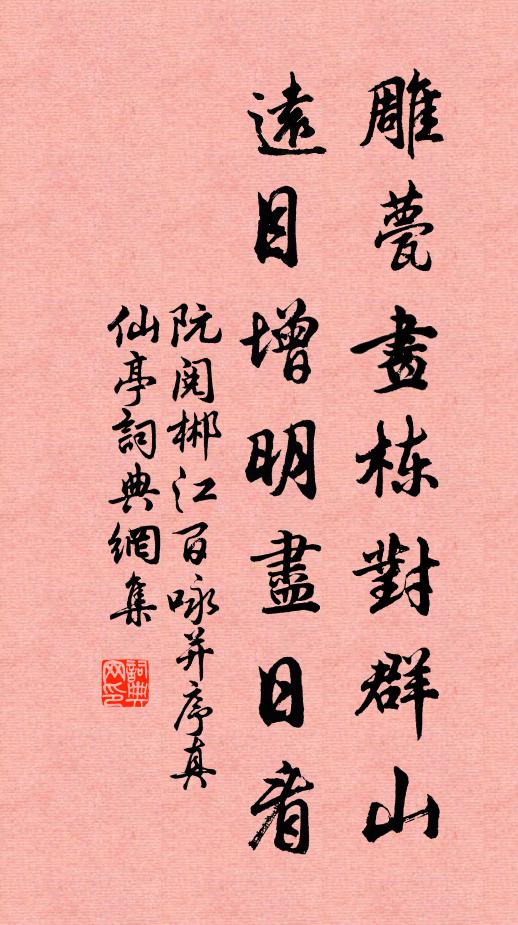 雕甍畫棟對群山
遠目增明盡日看
阮閱郴江百咏并序真
仙亭詞典網集
詞典網印